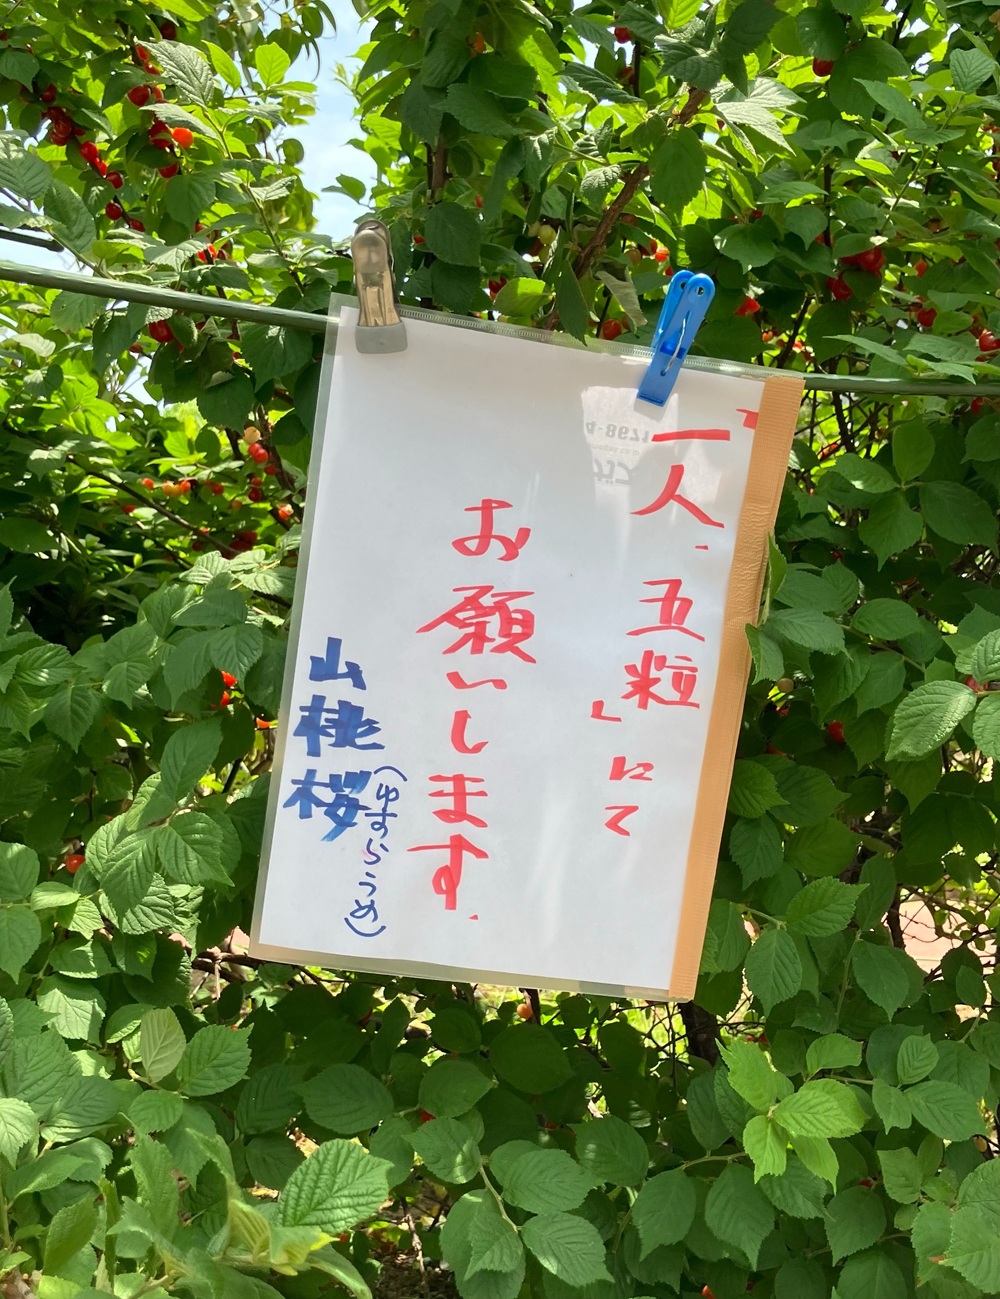 「一人.五粒」にて
お願いします.
山桃桜
(ゆすらうめ)